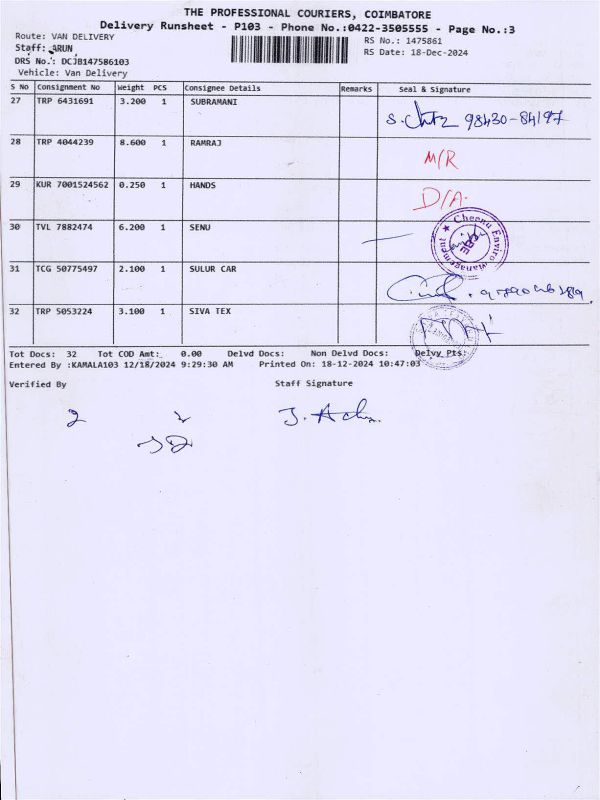 THE PROFESSIONAL COURIERS, COIMBATORE
Delivery Runsheet - P103 - Phone No.:0422-3505555 - Page No.:3
Route: VAN DELIVERY
RS No.: 1475861
Staff: ARUN
RS Date: 18-Dec-2024
DRS No.: DCJB147586103
Vehicle: Van Delivery
S No Consignment No Weight PCS Consignee Details Remarks Seal & Signature
27 TRP 6431691 3.200 1 SUBRAMANI
98430-84197
28 TRP 4044239 8.600 1 RAMRAJ
M/R
29 KUR 7001524562 0.250 1 HANDS
D/A.
30 TVL 7882474 6.200 1 SENU
Cheenu Enviro Management
31 TCG 50775497 2.100 1 SULUR CAR
32 TRP 5053224 3.100 1 SIVA TEX
Tot Docs: 32 Tot COD Amt: 0.00 Delvd Docs: Non Delvd Docs: Delvy Pts:
Entered By :KAMALA103 12/18/2024 9:29:30 AM Printed On: 18-12-2024 10:47:03
Verified By Staff Signature